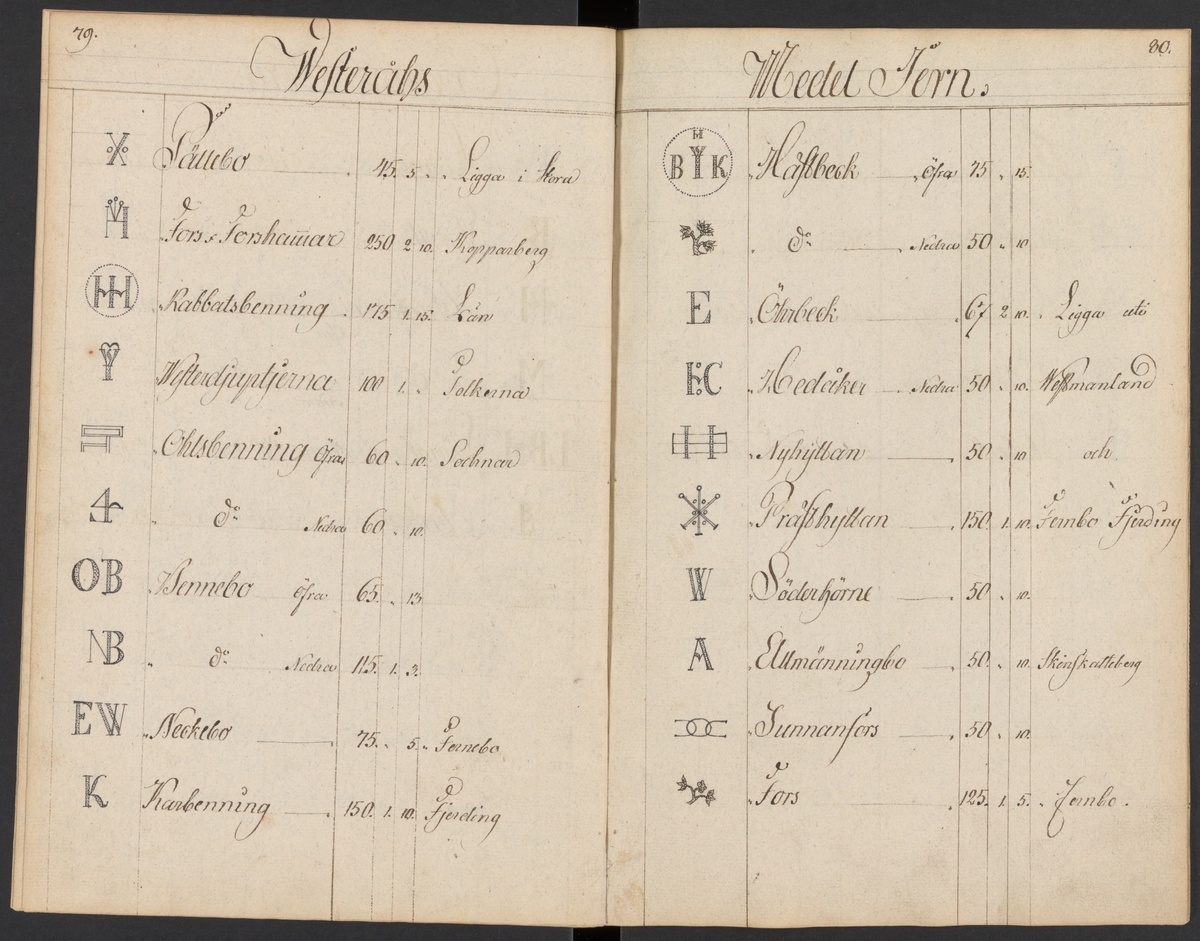 79.
Westeråhs
Sättebo 45. 5. Ligga i Stora
Fors o Forsham̅ar 250 2 10. Kopparberg
Kabbatsbenning 175 1. 15. Län
Y Westerdjuptjerna 100 1. Folkerna
Ohlsbenning Öfra 60 10. Socknar
do Nedra 60 10.
OB Bennebo Öfra 65. 13
NB do Nedra 115. 1. 3.
EW Neckebo 75. 5. Fernebo
K Karbenning 150. 1. 10. Fjerding
80.
Medel Jern.
M BYK Håstbeck Öfra 75 15.
do Nedra 50 10
E Öhrbeck 67 2 10. Ligga uti
EC Hedåker Nedra 50 10. Westmanland
Nyhyttan 50 10 och
Pråsthyttan 150 1. 10. Fernbo Fjerding
W Söderhörne 50 10.
A Allmänningbo 50. 10. Skinskatteberg
Sunnanfors 50 10.
Fors 125. 1. 5. Fernbo.